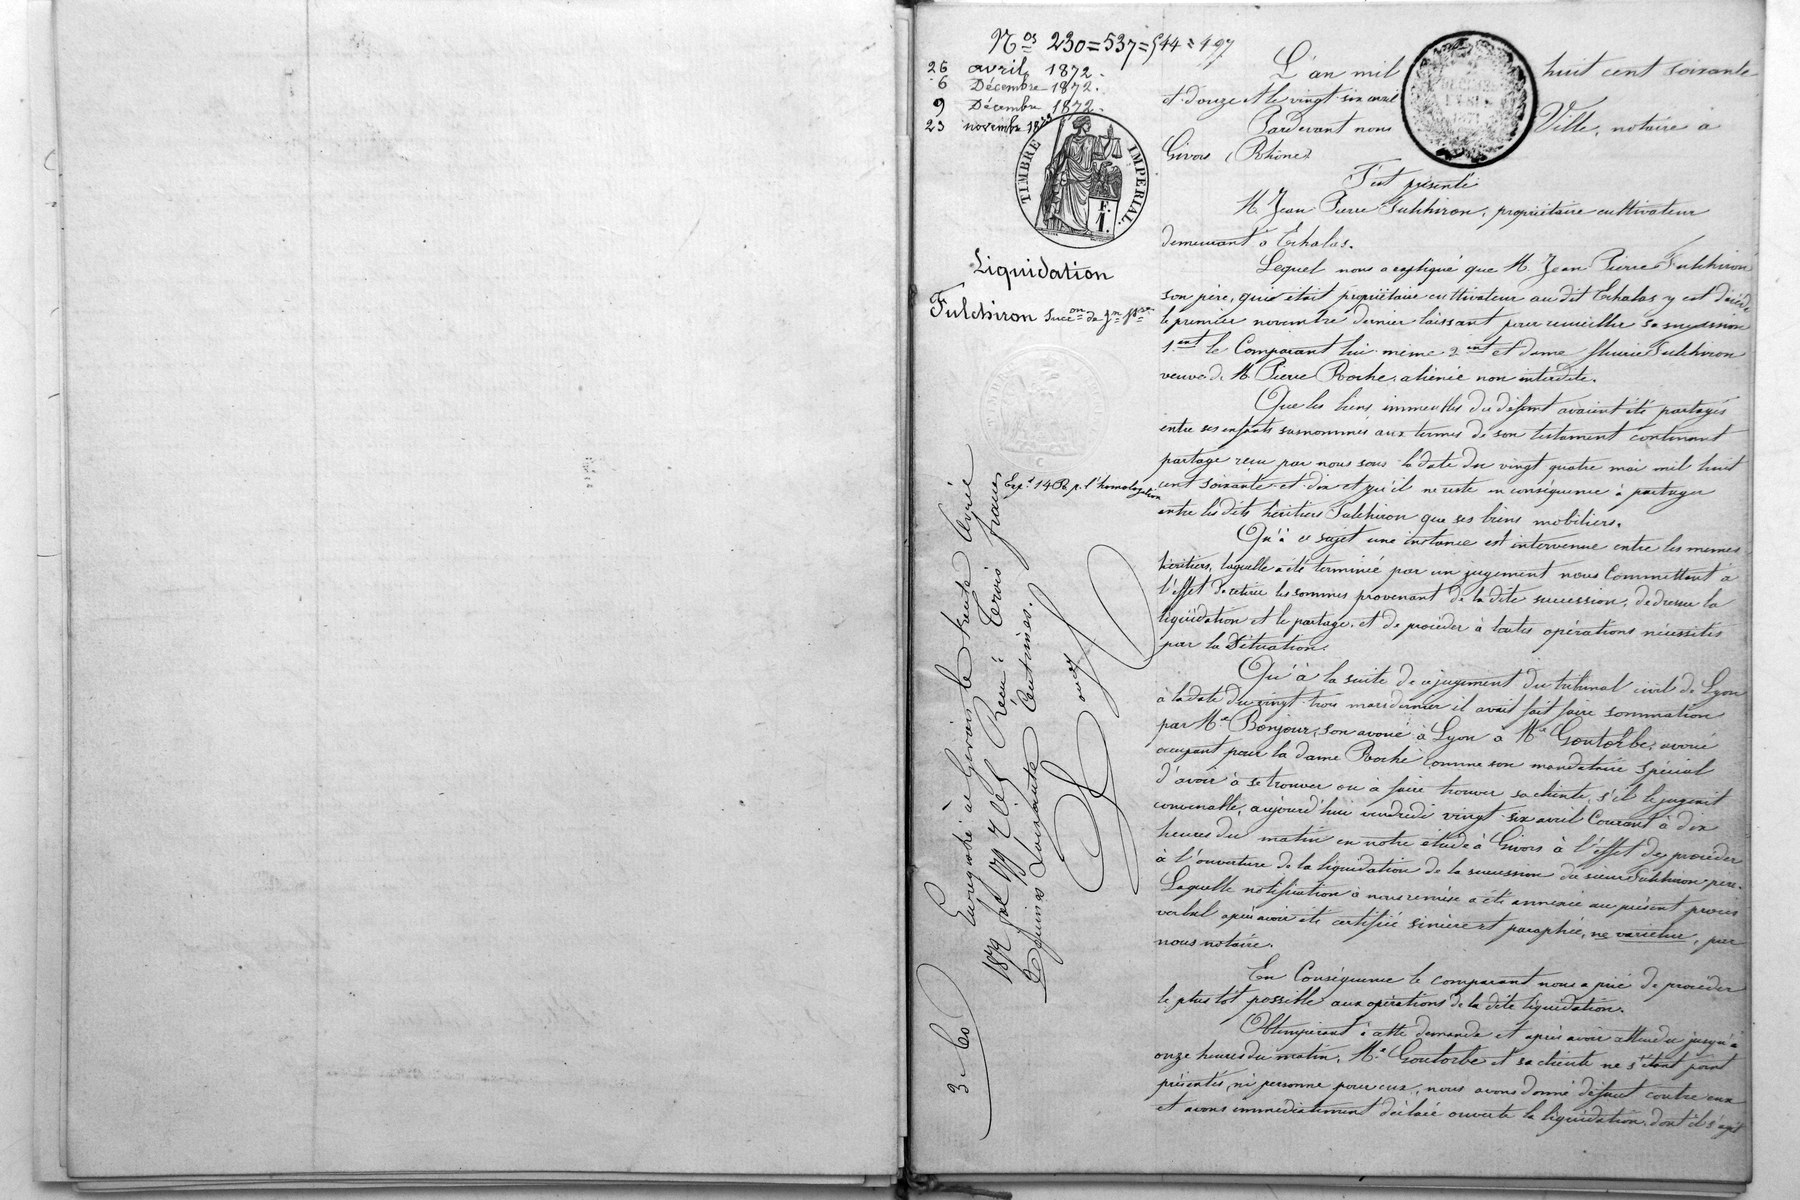 Nos 230=537=544=197
26 avril 1872.
6 Décembre 1872.
9 Décembre 1872.
23 novembre
TIMBRE IMPERIAL.
F.
1.
Liquidation
Fulchiron Succon de Jn Pre
Expt 14 R. pr. l'homologation
Enregistré à Givors le trente Avril
1872 Reçu: trois francs
soixante Centimes.
3.60
L'an mil huit cent soixante
et douze et le vingt six avril
Pardevant nous Ville, notaire à
Givors (Rhône)
S'est présenté
M. Jean Pierre Fulchiron, propriétaire cultivateur
demeurant à Echalas.
Lequel nous a expliqué que M. Jean Pierre Fulchiron
son père, qui était propriétaire cultivateur au dit Echalas y est décédé
le premier novembre dernier laissant pour recueillir sa succession
1.ent le Comparant lui même 2.ent et dame fleurie Fulchiron
veuve de M. Pierre Roche, aliénée non interdite.
Que les biens immeubles du défunt avaient été partagés
entre ses enfants susnommés aux termes de son testament contenant
partage reçu par nous sous la date du vingt quatre mai mil huit
cent soixante et dix et qu'il ne reste en conséquence à partager
entre les dits héritiers Fulchiron que ses biens mobiliers.
Qu'à ce sujet une instance est intervenue entre les memes
héritiers, laquelle a été terminée par un jugement nous Commettant à
l'effet de retirer les sommes provenant de la dite succession, de dresser la
liquidation et le partage, et de procéder à toutes opérations nécessités
par la Situation.
Qu'à la suite de ce jugement du tribunal civil de Lyon
à la date du vingt trois mars dernier il avait fait faire sommation
par Me Bonjour, son avoué à Lyon à Me Goutorbe, avoué
occupant pour la dame Roche comme son mandataire spécial
d'avoir à se trouver ou à faire trouver sa cliente, s'il le jugeait
convenable, aujourd'hui vendredi vingt six avril Courant à dix
heures du matin en notre étude à Givors à l'effet de procéder
à l'ouverture de la liquidation de la succession du sieur Fulchiron père.
Laquelle notification à nous remise a été annexée au présent procès
verbal après avoir été certifiée sincère et paraphée, ne varietur, par
nous notaire.
En Conséquence le comparant nous a prié de procéder
le plus tôt possible aux opérations de la dite liquidation.
Obtempérant à cette demande et après avoir attendu jusqu'à
onze heures du matin, Me Goutorbe et sa cliente ne s'étant point
présentés, ni personne pour eux, nous avons donné défaut contre eux
et avons immédiatement déclaré ouverte la liquidation dont il s'agit